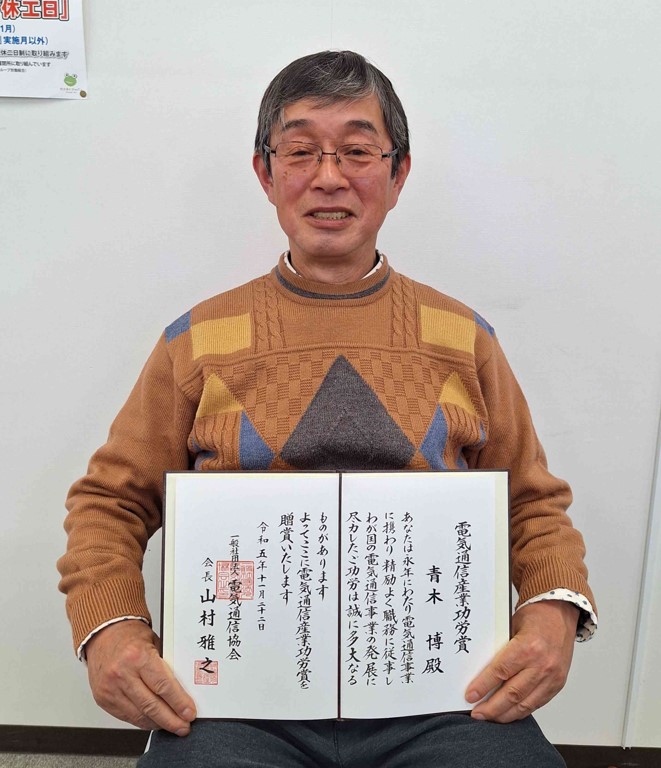 休工日」
1月）
実施月以外）
休二日制に取り組みます
電気通信産業功労賞
青木 博殿
あなたは永年にわたり電気通信事業
に携わり精励よく職務に従事し
わが国の電気通信事業の発展に
尽力したご功労は誠に多大なる
ものがあります
よってここに電気通信産業功労賞を
贈賞いたします
令和五年十一月二十二日
一般社団法人 電気通信協会
会長 山村雅之